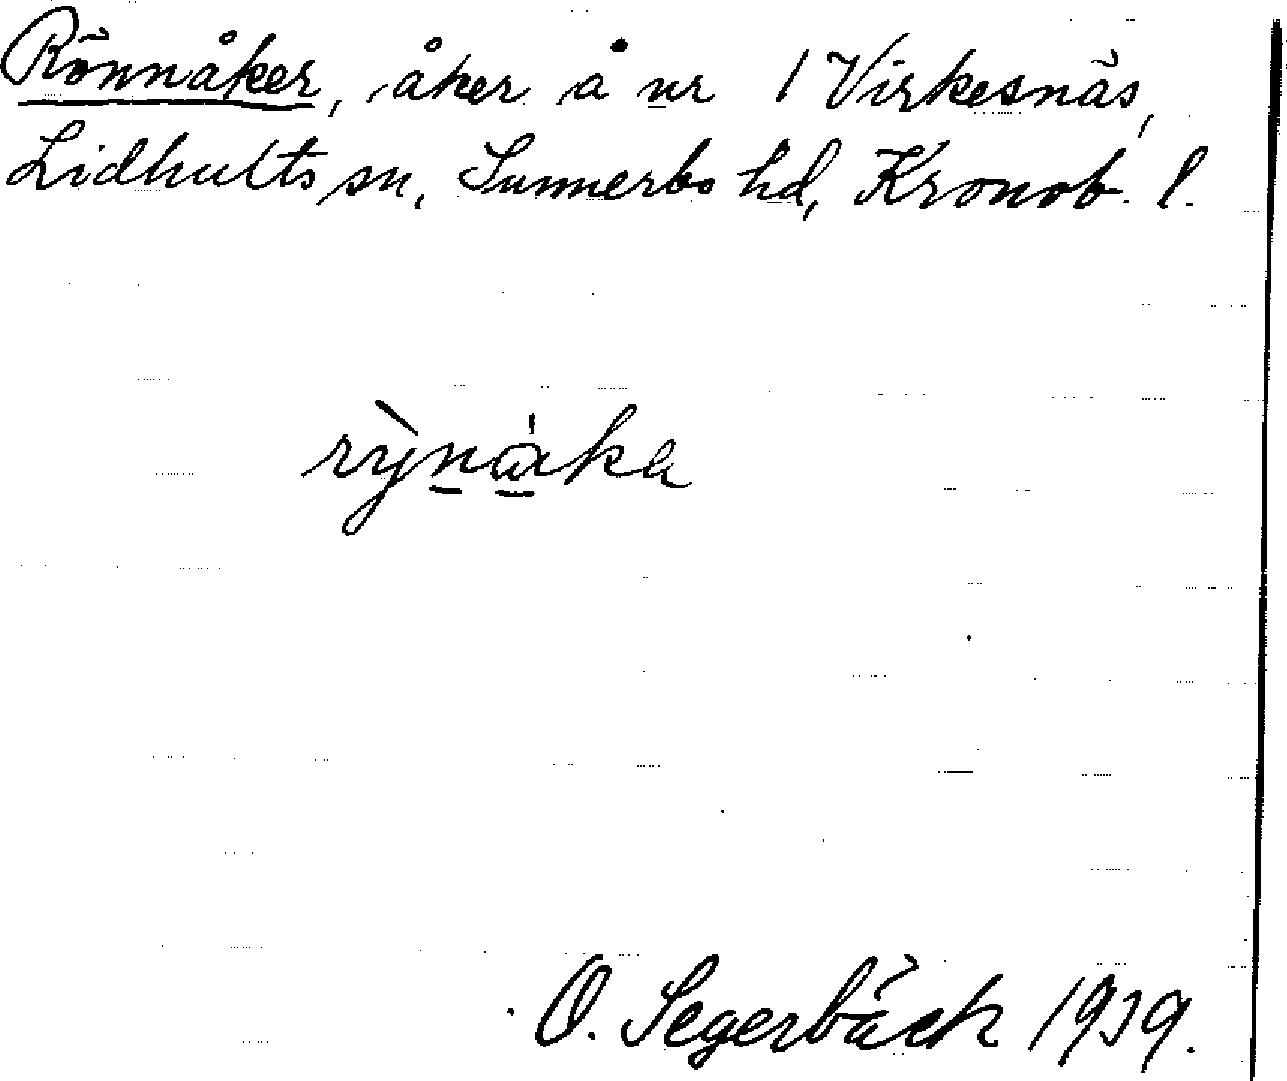 Rönnåker, åker å nr 1 Virkesnäs,
Lidhults sn, Sunnerbo hd, Kronob. l.
rỳnàka
O. Segerbäck 1939.